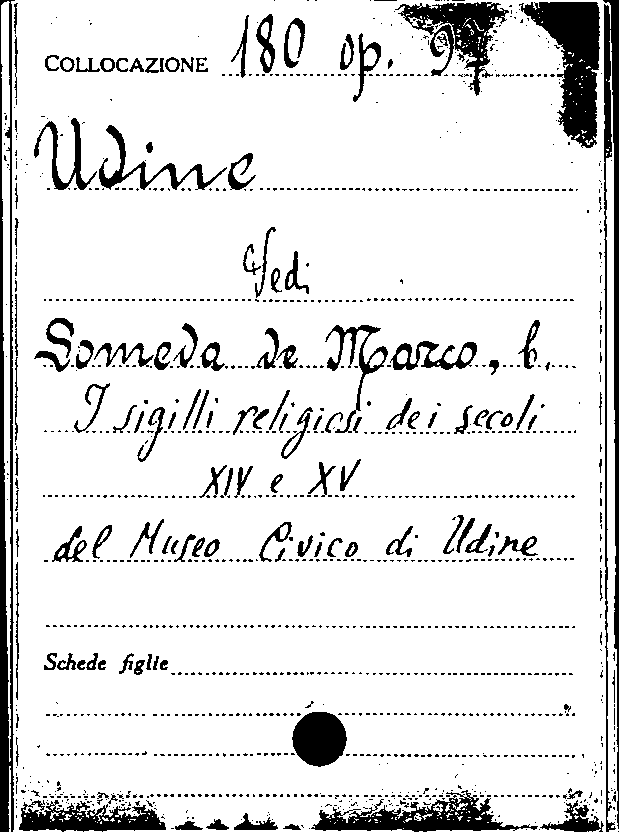 COLLOCAZIONE 180 op. 97
Udine
Vedi
Someda de Marco, C.
I sigilli religiosi dei secoli
XIV e XV
del Museo Civico di Udine
Schede figlie